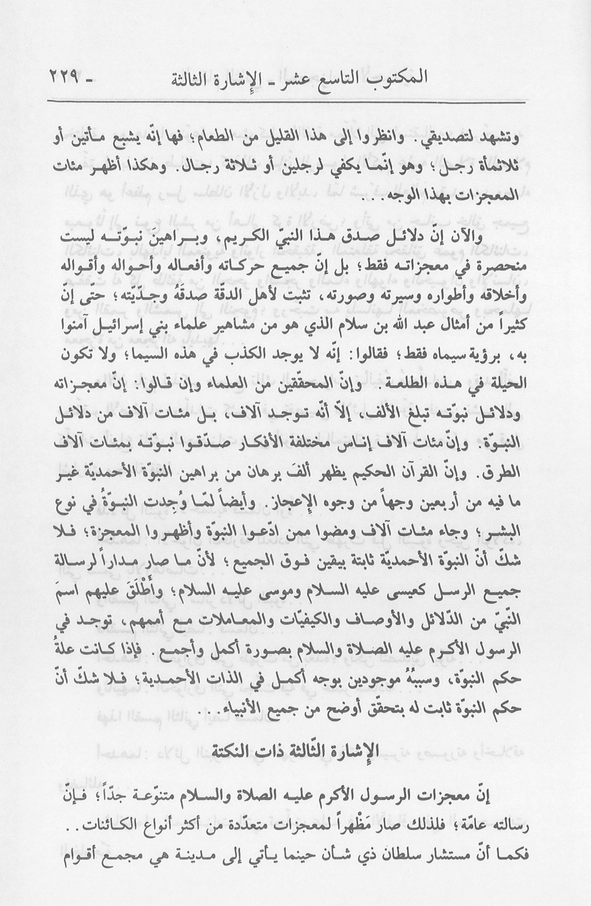 المكتوب التاسع عشر ـ الإشارة الثالثة ـ ٢٢٩
وتشهد لتصديقي. وانظروا إلى هذا القليل من الطعام؛ فها إنّه يشبع مأتين أو
ثلاثمأة رجل؛ وهو إنّما يكفي لرجلين أو ثلاثة رجال. وهكذا أظهر مئات
المعجزات بهذا الوجه...
والآن إنّ دلائل صدق هذا النبيّ الكريم، وبراهينَ نبوّته ليست
منحصرة في معجزاته فقط؛ بل إنّ جميع حركاته وأفعاله وأحواله وأقواله
وأخلاقه وأطواره وسيرته وصورته، تثبت لأهل الدقّة صدقَهُ وجدّيّته؛ حتّى إنّ
كثيراً من أمثال عبد الله بن سلام الذي هو من مشاهير علماء بني إسرائيل آمنوا
به، برؤية سيماه فقط؛ فقالوا: إنّه لا يوجد الكذب في هذه السيما؛ ولا تكون
الحيلة في هذه الطلعة. وإنّ المحقّقين من العلماء وإن قالوا: إنّ معجزاته
ودلائل نبوّته تبلغ الألف، إلاّ أنّه توجد آلاف، بل مئات آلاف من دلائل
النبوّة. وإنّ مئات آلاف إناس مختلفة الأفكار صدّقوا نبوّته بمئات آلاف
الطرق. وإنّ القرآن الحكيم يظهر ألفَ برهان من براهين النبوّة الأحمديّة غير
ما فيه من أربعين وجهاً من وجوه الإعجاز. وأيضاً لمّا وُجدت النبوّةُ في نوع
البشر؛ وجاء مئات آلاف ومضوا ممن ادّعوا النبوّة وأظهروا المعجزة؛ فلا
شكّ أنّ النبوّة الأحمديّة ثابتة بيقين فوق الجميع؛ لأنّ ما صار مداراً لرسالة
جميع الرسل كعيسى عليه السلام وموسى عليه السلام؛ وأَطْلَقَ عليهم اسمَ
النّبيّ من الدّلائل والأوصاف والكيفيّات والمعاملات مع أممهم، توجد في
الرسول الأكرم عليه الصلاة والسلام بصورة أكمل وأجمع. فإذا كانت علةُ
حكم النبوّة، وسببُهُ موجودين بوجه أكمل في الذات الأحمدية؛ فلا شكّ أنّ
حكم النبوّة ثابت له بتحقق أوضح من جميع الأنبياء...
الإشارة الثّالثة ذات النكتة
إنّ معجزات الرسول الأكرم عليه الصلاة والسلام متنوّعة جدّاً؛ فإنّ
رسالته عامّة؛ فلذلك صار مَظْهراً لمعجزات متعدّدة من أكثر أنواع الكائنات..
فكما أنّ مستشار سلطان ذي شأن حينما يأتي إلى مدينة هي مجمع أقوام